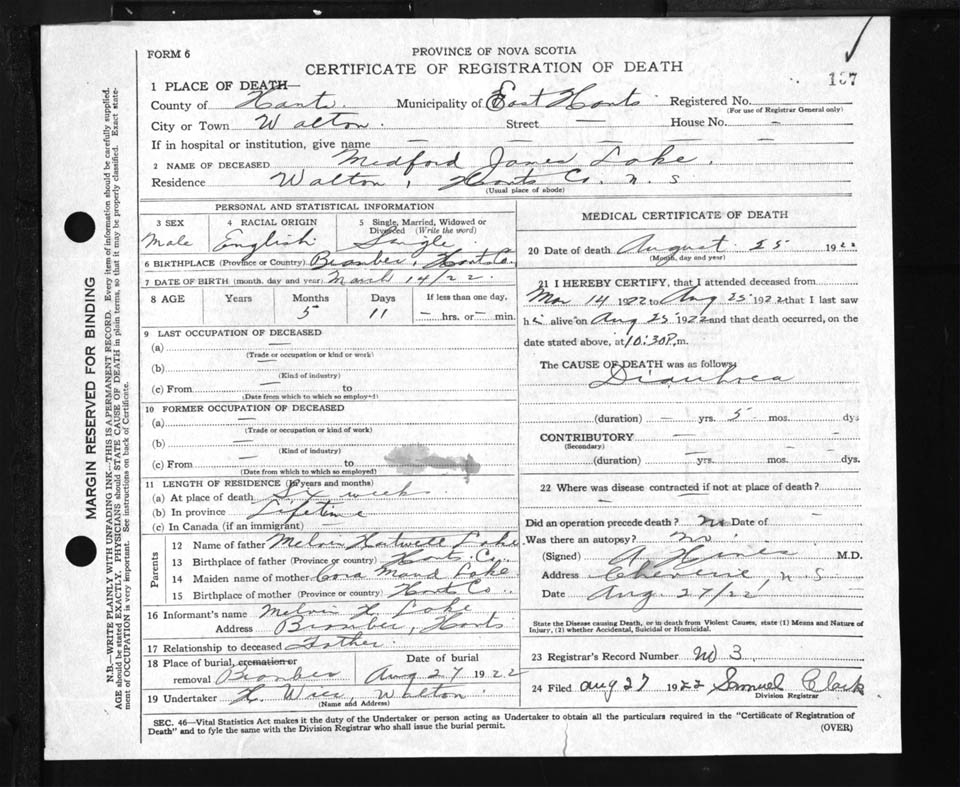 FORM 6
PROVINCE OF NOVA SCOTIA
CERTIFICATE OF REGISTRATION OF DEATH
167
1 PLACE OF DEATH—
County of Hants. Municipality of East Hants Registered No.
(For use of Registrar General only)
City or Town Walton. Street — House No. —
If in hospital or institution, give name — — —
2 NAME OF DECEASED Medford James Lake.
Residence Walton, Hants Co. N. S
(Usual place of abode)
PERSONAL AND STATISTICAL INFORMATION
3 SEX
Male
4 RACIAL ORIGIN
English
5 Single, Married, Widowed or
Divorced (Write the word)
Single
6 BIRTHPLACE (Province or Country) Bramber, Hants Co.
7 DATE OF BIRTH (month, day and year) March 14/22.
8 AGE Years Months Days If less than one day,
5 11 — hrs. or — min.
9 LAST OCCUPATION OF DECEASED
(a) —
(Trade or occupation or kind of work)
(b) —
(Kind of industry)
(c) From — to
(Date from which to which so employed)
10 FORMER OCCUPATION OF DECEASED
(a) —
(Trade or occupation or kind of work)
(b) —
(Kind of industry)
(c) From — to
(Date from which to which so employed)
11 LENGTH OF RESIDENCE (In years and months)
(a) At place of death Six weeks.
(b) In province Lifetime
(c) In Canada (if an immigrant) —
Parents
12 Name of father Melvin Hatwell Lake.
13 Birthplace of father (Province or country) Hants. Co.
14 Maiden name of mother Cora Maud Lake
15 Birthplace of mother (Province or country) Hants Co.
16 Informant's name Melvin H. Lake
Address Bramber, Hants
17 Relationship to deceased Father.
18 Place of burial, cremation or
removal Bramber
Date of burial
Aug 27 1922
19 Undertaker H. Wier, Walton
(Name and Address)
MEDICAL CERTIFICATE OF DEATH
20 Date of death August 25 1922
(Month, day and year)
21 I HEREBY CERTIFY, that I attended deceased from
Mar 14 1922 to Aug 25 1922 that I last saw
h alive on Aug 25 1922 and that death occurred, on
the date stated above, at 10:30 P.m.
The CAUSE OF DEATH was as follows:
Diarrhea
(duration) — yrs. 5 mos. dys
CONTRIBUTORY — —
(Secondary)
(duration) — yrs. — mos. — dys.
22 Where was disease contracted if not at place of death?
—
Did an operation precede death? No Date of —
Was there an autopsy? No
(Signed) A Hines M.D.
Address Cheverie, N. S
Date Aug. 27/22
State the Disease causing Death, or in death from Violent Causes, state (1) Means and Nature of
Injury, (2) whether Accidental, Suicidal or Homicidal.
23 Registrar's Record Number No 3.
24 Filed Aug 27 1922 Samuel Clark
Division Registrar
SEC. 46—Vital Statistics Act makes it the duty of the Undertaker or person acting as Undertaker to obtain all the particulars required in the "Certificate of Registration of
Death" and to fyle the same with the Division Registrar who shall issue the burial permit.
(OVER)
MARGIN RESERVED FOR BINDING
N.B.—WRITE PLAINLY WITH UNFADING INK—THIS IS A PERMANENT RECORD. Every item of information should be carefully supplied.
AGE should be stated EXACTLY. PHYSICIANS should STATE CAUSE OF DEATH in plain terms, so that it may be properly classified. Exact state-
ment of OCCUPATION is very important. See instructions on back of Certificate.